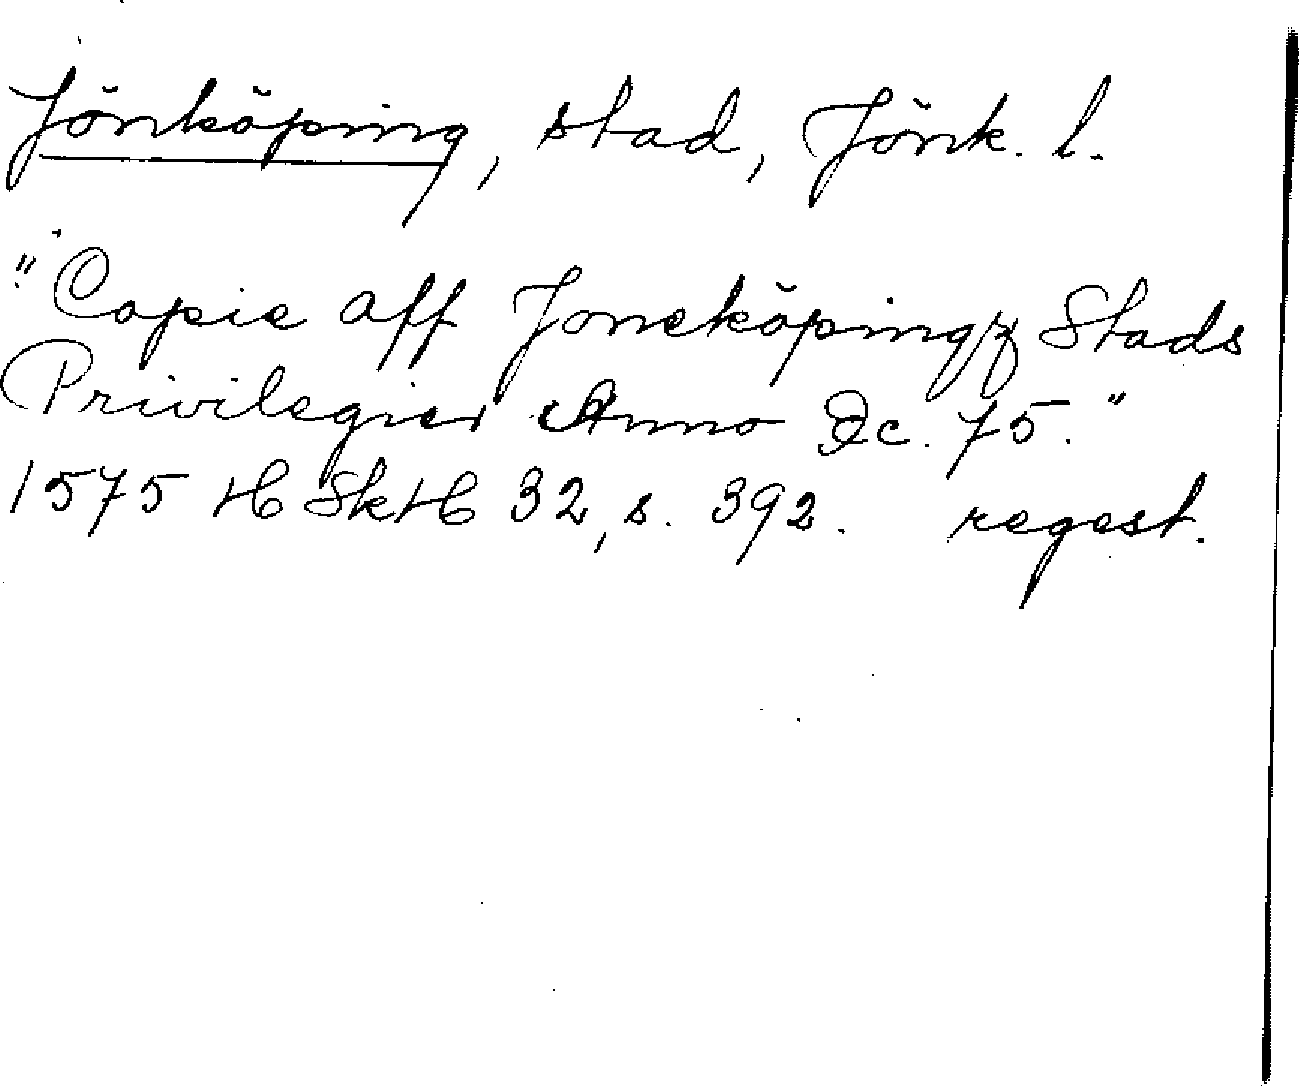 Jönköping, stad, Jönk. l.
"Copie aff Joneköpingz Stads
Privilegier Anno &c. 75."
1575 HSkH 32, s. 392. regest.